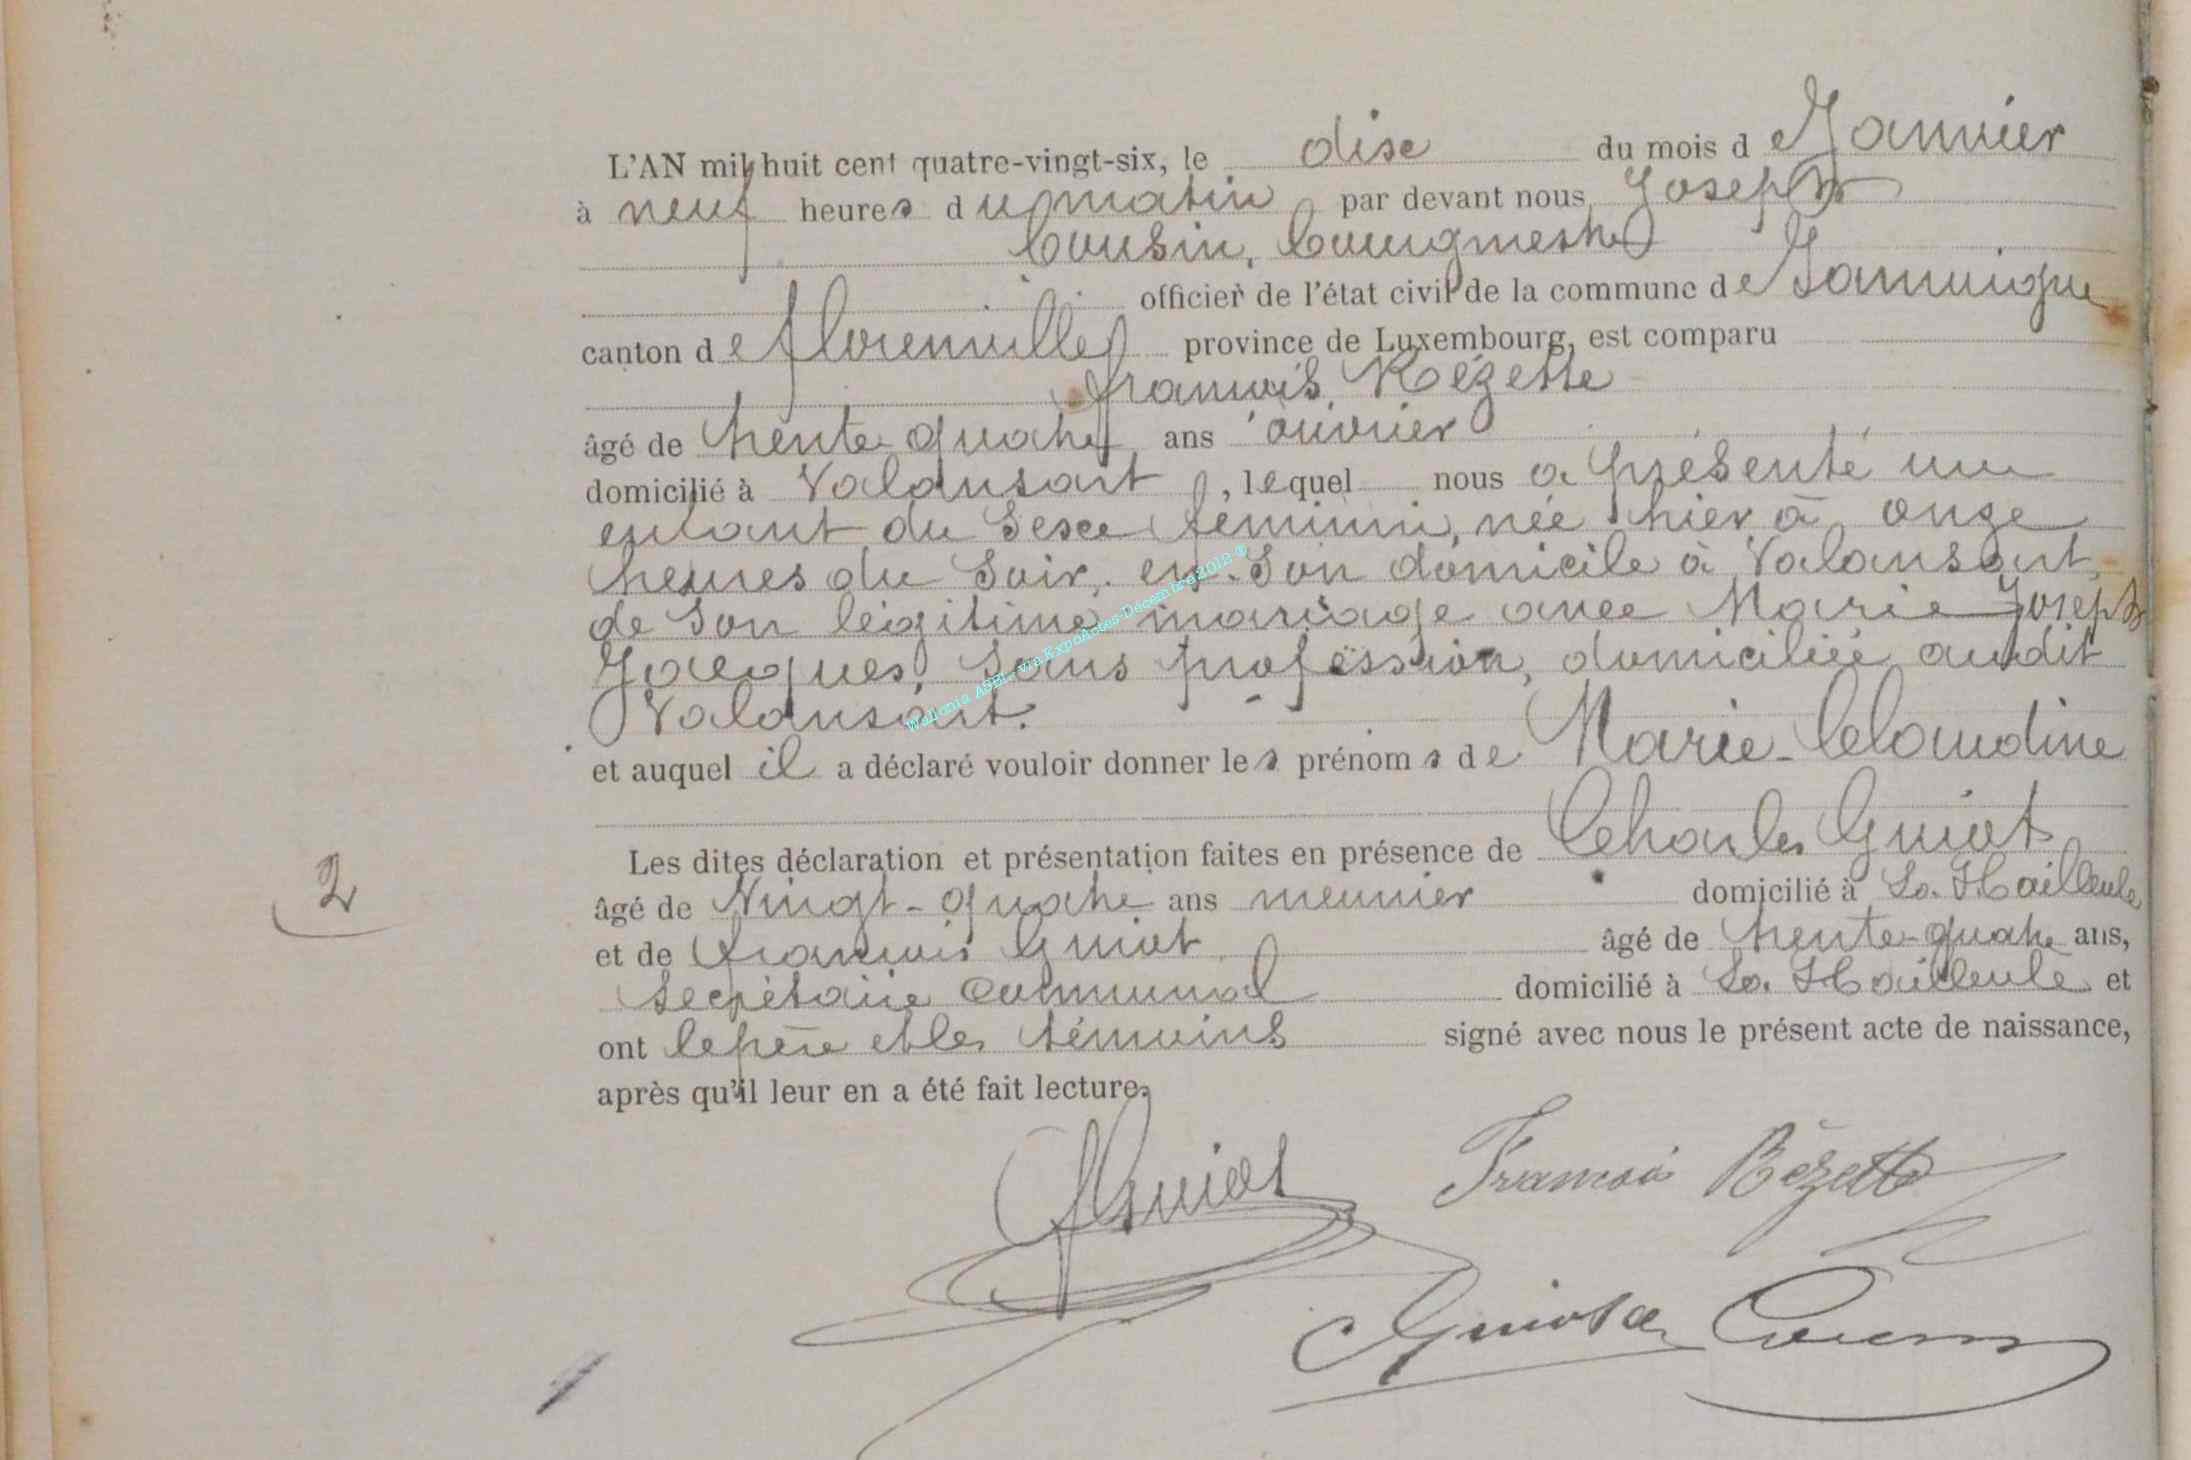 L'AN mil huit cent quatre-vingt-six, le dixe du mois de Janvier
à neuf heures du matin par devant nous Joseph
Cousin, bourgmestre
officier de l'état civil de la commune de Jamoigne
canton de Florenville province de Luxembourg, est comparu
François Rézette
âgé de trente quatre ans ouvrier
domicilié à Valansart, lequel nous a présenté un
enfant du sexe féminin, née hier à onze
heures du soir, en son domicile à Valansart,
de son légitime mariage avec Marie Joseph
Jacques, sans profession, domiciliée audit
Valansart.
et auquel il a déclaré vouloir donner les prénoms de Marie-Claudine
Les dites déclaration et présentation faites en présence de Charles Guiot
2
âgé de Vingt-quatre ans meunier domicilié à La Hailleule
et de François Guiot âgé de trente-quatre ans,
secrétaire communal domicilié à La Hailleule et
ont le père et les témoins signé avec nous le présent acte de naissance,
après qu'il leur en a été fait lecture.
FGuiot François Rézette
CGuiot Cousin
Wallonia ASBL via ExpoActes Décembre 2012 ®